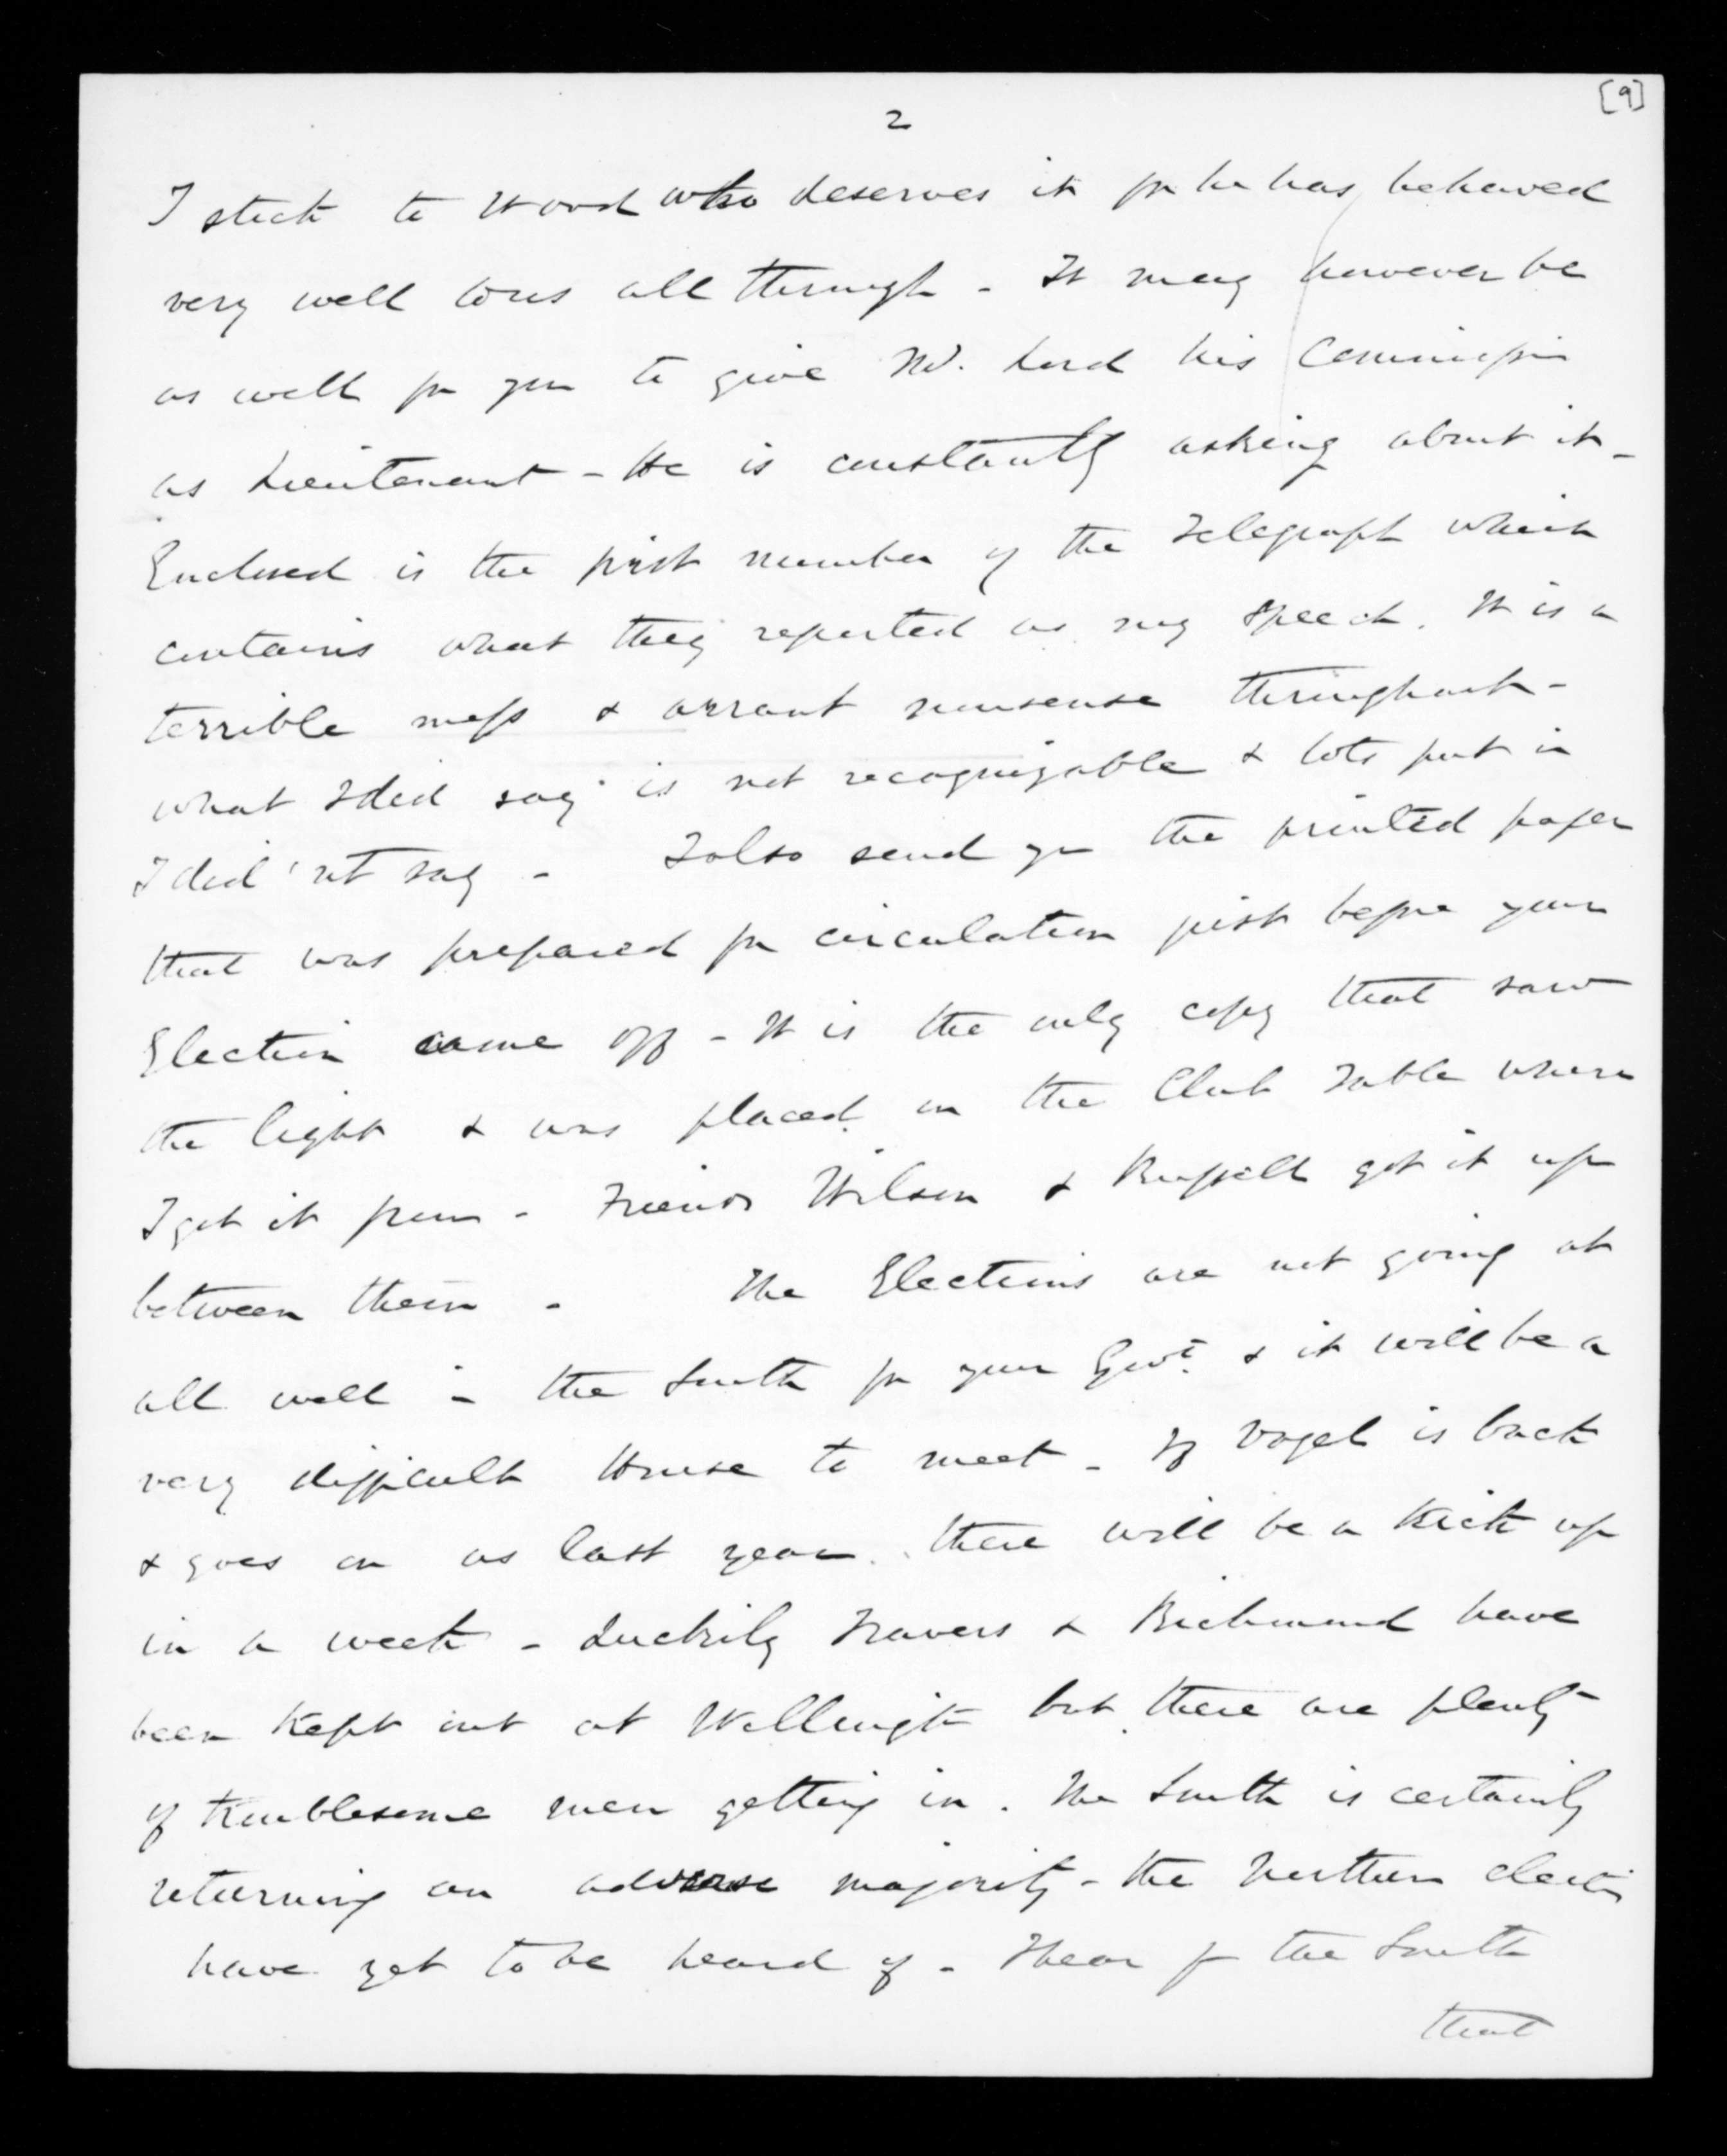 [9]
2
I stick to Wood who deserves it for he has behaved
very well to us all through - It may however be
as well for you to give Mr. Lord his Commission
as Lieutenant - He is constantly asking about it -
Enclosed is the first number of the Telegraph which
contains what they reported as my speech. It is a
terrible mess & arrant nonsense throughout -
what I did say is not recognizable & lots put in
I did'nt say - I also send you the printed paper
that was prepared for circulation just before your
Election came off - It is the only copy that saw
the light & was placed on the Club Table where
I got it from - Friends Wilson & Russell got it up
between them - The Elections are not going at
all well in the South for your Govt. & it will be a
very difficult House to meet - If Vogel is back
& goes on as last year there will be a kick up
in a week - Luckily Travers & Richmond have
been kept out at Wellington but there are plenty
of troublesome men getting in. The South is certainly
returning an adverse majority - the Northern electns
have yet to be heard of - I hear fm the South
that